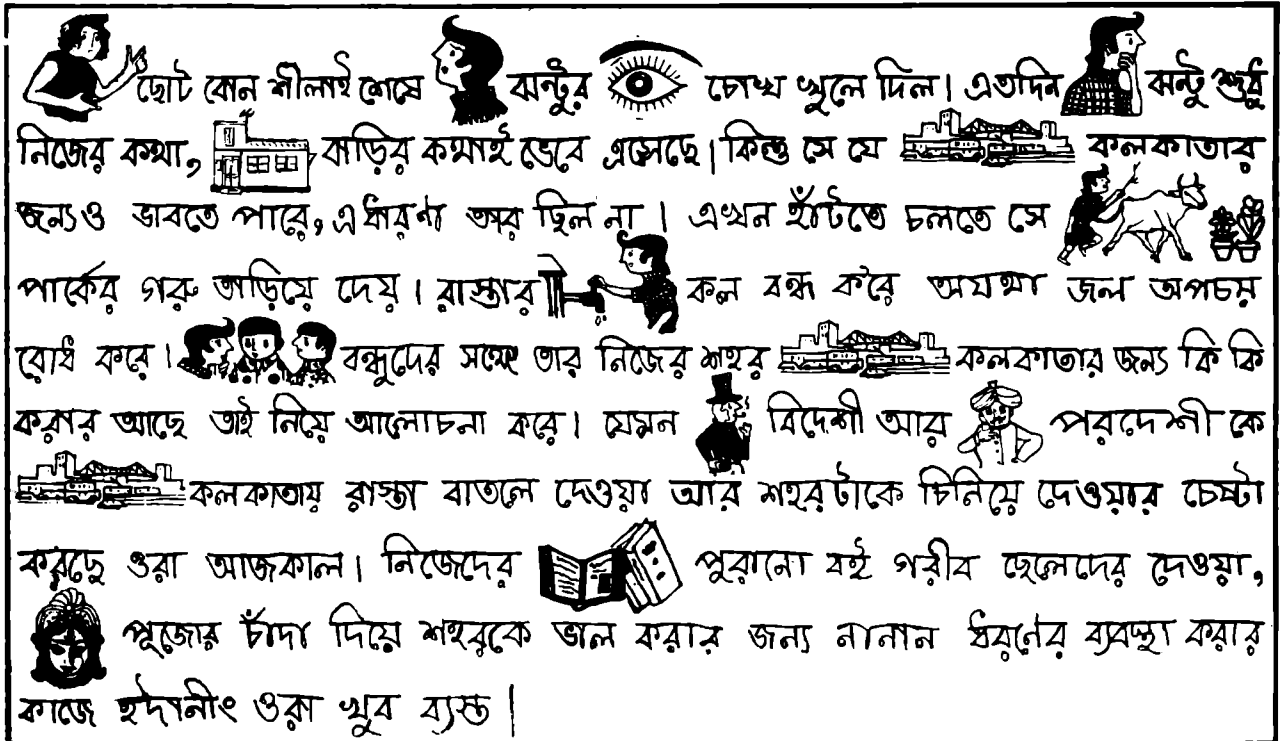 ছোট বোন শীলাই শেষে ঝন্টুর চোখ খুলে দিল। এতদিন ঝন্টু শুধু
নিজের কথা, বাড়ির কথাই ভেবে এসেছে। কিন্তু সে যে কলকাতার
জন্যও ভাবতে পারে, এ ধারণা তার ছিল না। এখন হাঁটতে চলতে সে
পার্কের গরু তাড়িয়ে দেয়। রাস্তার কল বন্ধ করে অযথা জল অপচয়
রোধ করে। বন্ধুদের সঙ্গে তার নিজের শহর কলকাতার জন্য কি কি
করার আছে তাই নিয়ে আলোচনা করে। যেমন বিদেশী আর পরদেশী কে
কলকাতায় রাস্তা বাতলে দেওয়া আর শহরটাকে চিনিয়ে দেওয়ার চেষ্টা
করছে ওরা আজকাল। নিজেদের পুরানো বই গরীব ছেলেদের দেওয়া,
পূজোর চাঁদা দিয়ে শহরকে ভাল করার জন্য নানান ধরণের ব্যবস্থা করার
কাজে ইদানীং ওরা খুব ব্যস্ত।